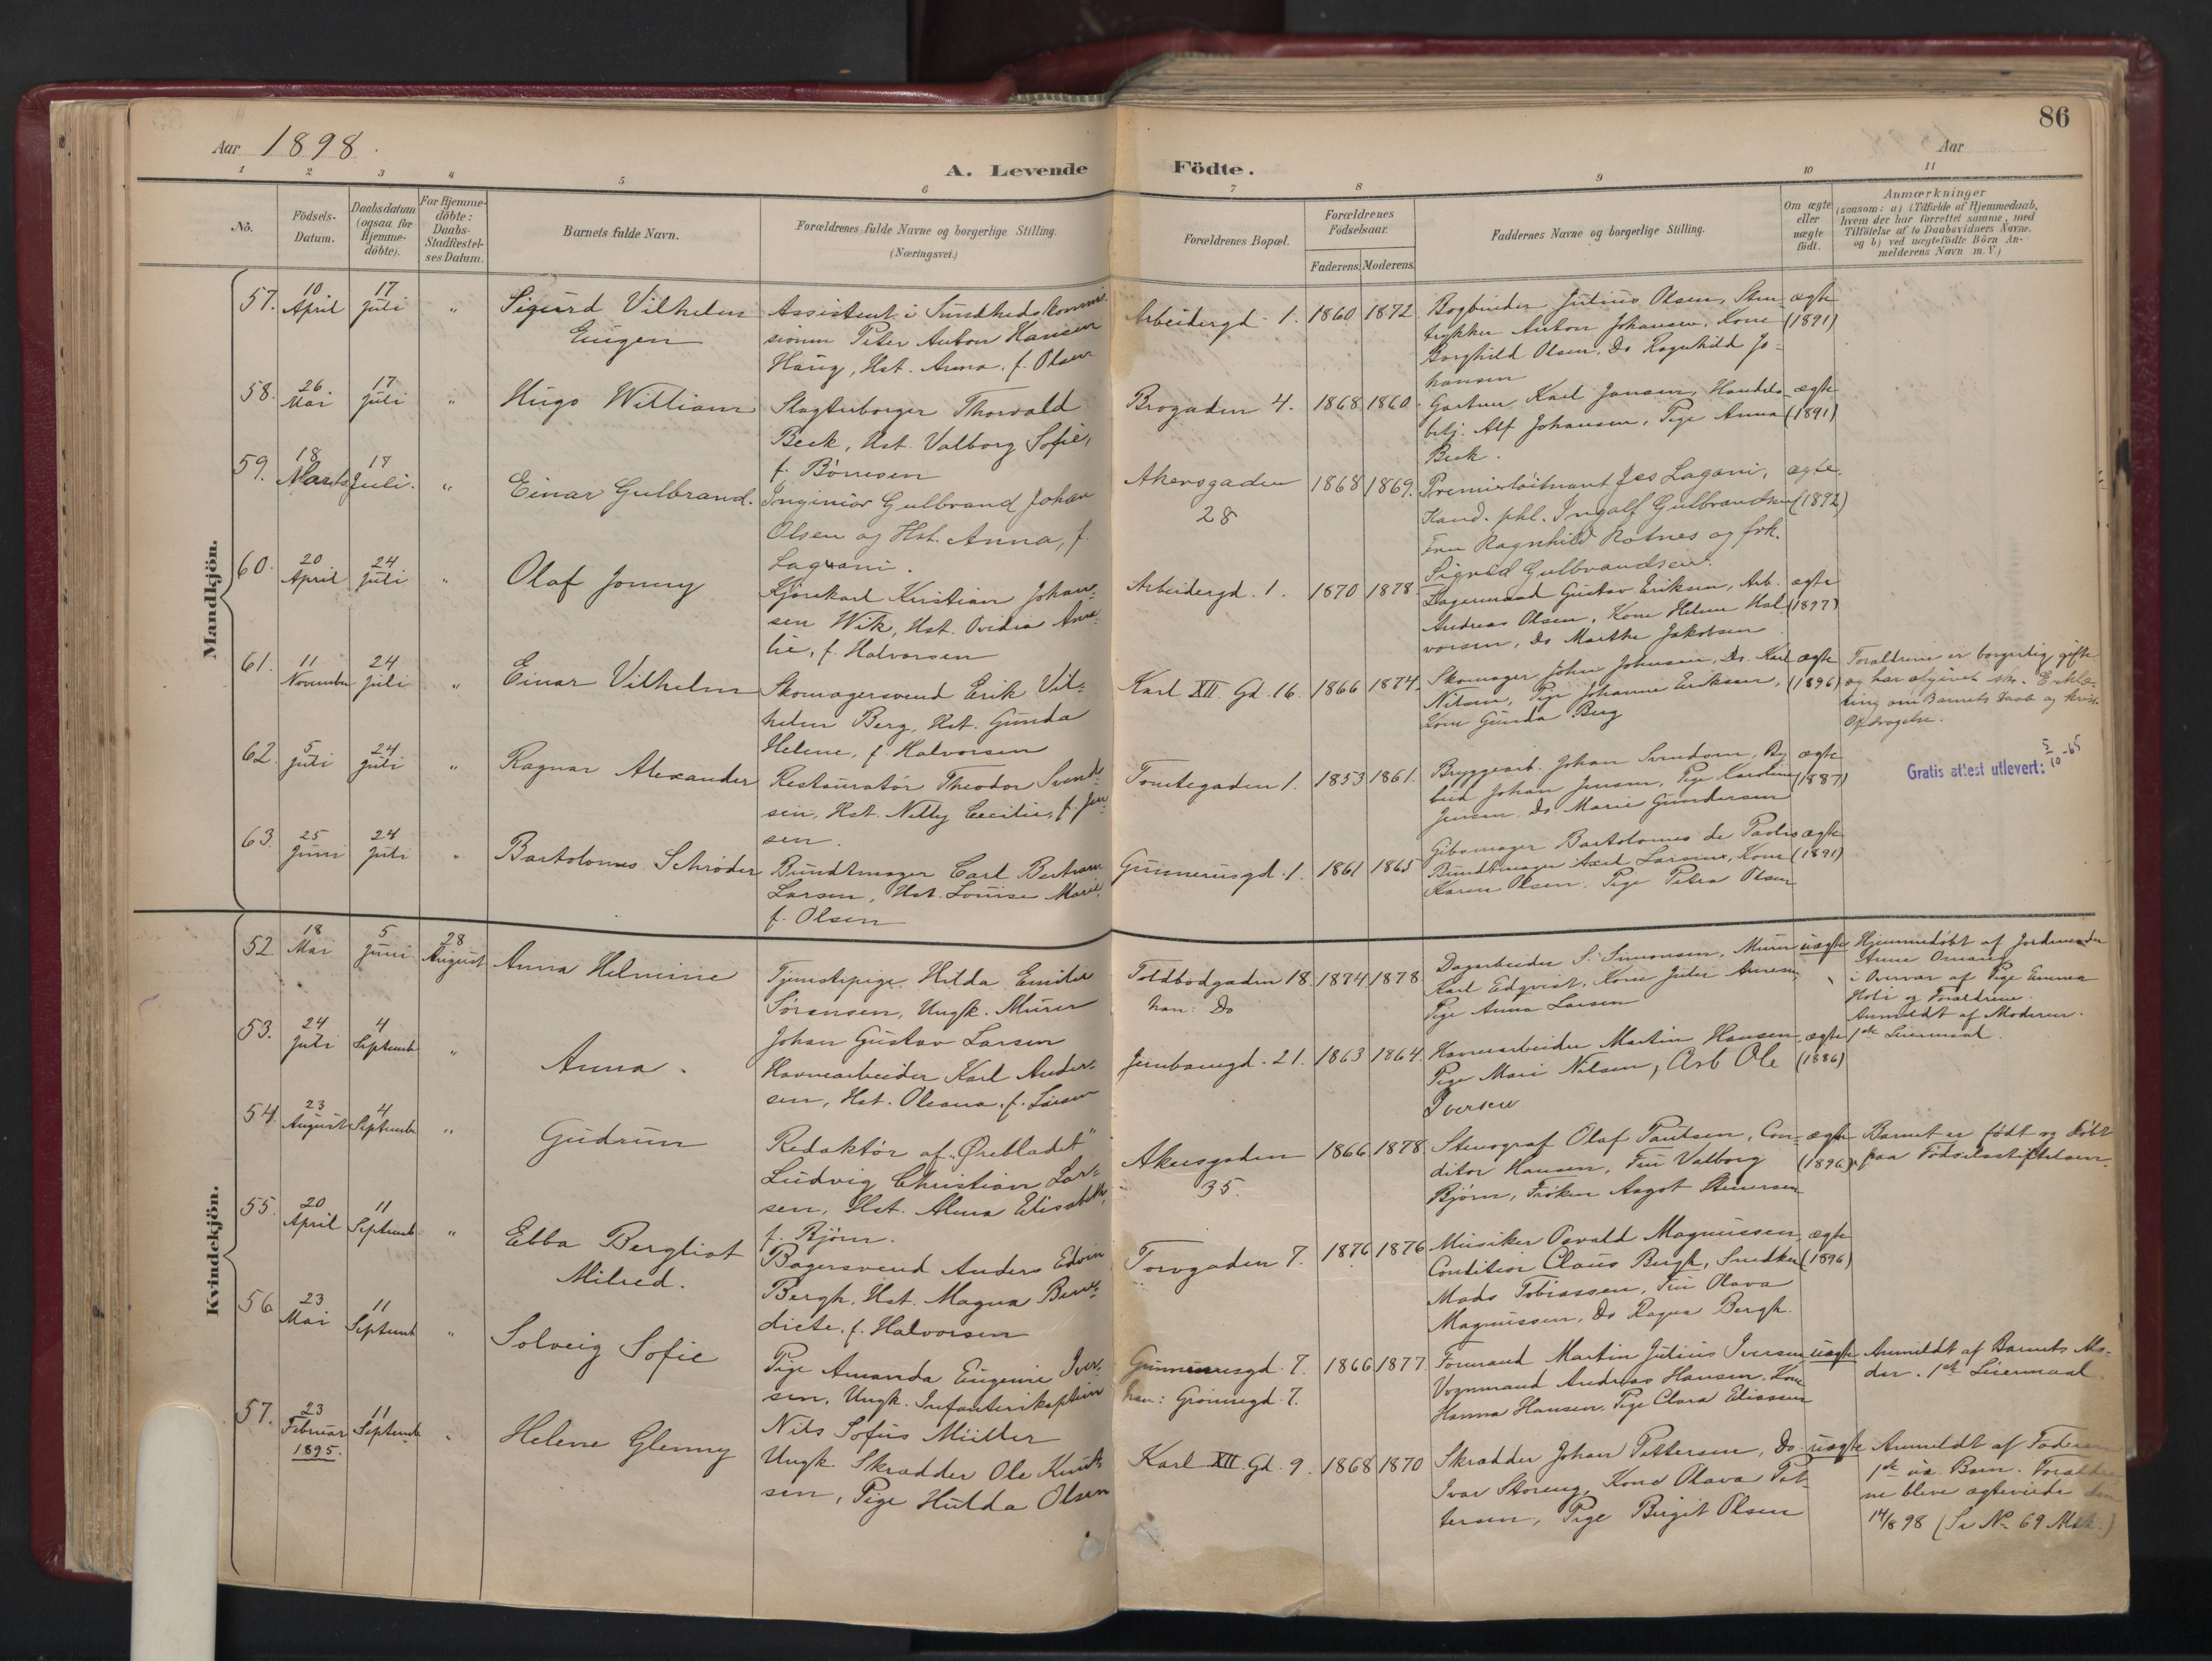 86
Aar 1898.
A. Levende Födte.
Aar
1 2 3 4 5 6 7 8 9 10 11
No.
Födsels-Datum.
Daabsdatum (ogsaa for Hjemme-döbte).
For Hjemme-döbte: Daabs-Stadfæstel-ses Datum.
Barnets fulde Navn.
Forældrenes fulde Navne og borgerlige Stilling.
(Næringsvei.)
Forældrenes Bopæl.
Forældrenes Födselsaar.
Faderens. Moderens.
Faddernes Navne og borgerlige Stilling.
Om ægte eller uægte födt.
Anmærkninger
(saasom: a) i Tilfælde af Hjemmedaab,
hvem der har forrettet samme, med
Tilföielse af to Daabsvidners Navne,
og b) ved uægtefödte Börn An-
melderens Navn m. V.)
Mandkjön.
57. 10 April 17 Juli "
Sigurd Vilhelm
Eugen
Assistent i Sundhedskommis-
sionen Peter Anton Hansen
Haug, Hst. Anna, f. Olsen
Arbeidergd. 1. 1860 1872
Bogbinder Julius Olsen, Sten-
trykker Anton Johansen, Kone
Borghild Olsen, Do Ragnhild Jo-
hansen
ægte
(1891)
58. 26 Mai 17 Juli "
Hugo William
Slagterborger Thorvald
Beck, Hst. Valborg Sofie,
f. Børresen
Brogaden 4. 1868 1860
Gartner Karl Jansen, Handels-
betj. Alf Johansen, Pige Anna
Beck.
ægte
(1891)
59. 18 Marts 17 Juli. "
Einar Gulbrand.
Ingeniör Gulbrand Johan
Olsen og Hst. Anna, f.
Lagaani.
Akersgaden
28
1868 1869.
Premierløitnant Jes Lagani,
Kand. phl. Ingolf Gulbrandsen
Fru Ragnhild Rotnes og frk.
Sigrid Gulbrandsen.
ægte.
(1892)
60. 20 April 24 Juli "
Olaf Jonny
Kjørekarl Kristian Johan-
sen Wik, Hst. Ovidia Ama-
lie, f. Halvorsen
Arbeidergd. 1. 1870 1878
Lagermand Gustav Eriksen, Arb.
Andreas Olsen, Kone Helene Hal-
vorsen, Do Marthe Jakobsen
ægte
(1897)
61. 11 November 24 Juli "
Einar Vilhelm
Skomagersvend Erik Vil-
helm Berg, Hst. Gunda
Helene, f. Halvorsen
Karl XII. Gd. 16. 1866 1874.
Skomager Johan Johnsen, Do. Karl
Nilsen, Pige Johanne Eriksen,
Kone Gunda Berg
ægte
(1896)
Forældrene er borgerlig gifte
og har afgivet skr. Erklæ-
ring om Barnets Daab og krist.
Opdragelse.
62. 5 Juli 24 Juli "
Ragnar Alexander
Restauratør Theodor Svend-
sen, Hst. Nelly Cecilie, f. Jen-
sen.
Tomtegaden 1. 1853 1861.
Bryggearb. Johan Svendsen, By-
bud Johan Jensen, Pige Karoline
Jensen, Do. Marie Gundersen
ægte
(1887)
Gratis attest utlevert: 5/10-65
63. 25 Juni 24 Juli "
Bartolomeo Schrøder
Bundtmager Carl Bertram
Larsen, Hst. Louise Marie,
f. Olsen
Gunnerusgd. 1. 1861 1865
Gibsmager Bartolomeo de Paolis
Bundtmager Axel Larsen, Kone
Karen Olsen, Pige Petra Olsen
ægte
(1891)
Kvindekjön.
52. 18 Mai 5 Juni 28 August
Anna Helmine
Tjenestepige Hilda Emilie
Sörensen, Ungk. Murer
Johan Gustav Larsen
Toldbodgaden 18.
han: Do
1874 1878
Dagarbeider S. Simonsen, Murer
Karl Edqvist, Kone Julie
Pige Anna Larsen
uægte
Hjemmedøbt af Jordmoder
Anne
i Overvær af Pige Emma
Holi og Forældrene.
Anmeldt af Moderen.
1ste Leiermaal.
53. 24 Juli 4 Septemb "
Anna.
Havnearbeider Karl Ander-
sen, Hst. Oleana, f. Larsen
Jernbanegd. 21. 1863 1864.
Havnearbeider Martin Hansen
Pige Mari Nilsen, Arb Ole
Iversen
ægte
(1886)
54. 23 August 4 Septembr "
Gudrun
Redaktør af "Ørebladet"
Ludvig Christian Lar-
sen, Hst. Alma Elisabeth,
f. Bjørn.
Akersgaden
35.
1866 1878
Stenograf Olaf Paulsen, Con-
ditor Hansen, Fru Valborg
Bjørn, Frøken Aagot Stenersen
ægte
(1896)
Barnet er født og døbt
paa Fødselsstiftelsen.
55. 20 April 11 Septemb. "
Ebba Bergliot
Milred.
Bagersvend Anders Edvin
Bergh, Hst. Magna Bene-
dicte, f. Halvorsen
Torvgaden 7. 1876 1876
Musiker Osvald Magnussen
Conditior Claus Bergh, Snedker
Mads Tobiassen, Fru Olava
Magnussen, Do Ragna Bergh.
ægte
(1896)
56 23 Mai 11 Septemb "
Solveig Sofie
Pige Amanda Eugenie Iver-
sen, Ungk. Infanterikaptein
Nils Sofus Müller
Gunnerusgd. 7.
han: Grönnegd. 7.
1866 1877.
Formand Martin Julius Iversen
Vognmand Andreas Hansen, Kone
Hanna Hansen, Pige Clara Eliassen
uægte
Anmeldt af Barnets Mo-
der. 1ste Leiermaal.
57. 23 Februar 1895. 11 Septemb "
Helene Glenny
Ungk. Skrædder Ole Knut-
sen, Pige Hulda Olsen
Karl XII. Gd. 9. 1868 1870
Skrædder Johan Pettersen, Do.
Ivar Storeng, Kone Olava Pet-
tersen, Pige Birgit Olsen
uægte
Anmeldt af Faderen
1ste uæ. Barn. Forældre-
ne bleve ægteviede den
14/8 98 (Se No 69 Mdk.)